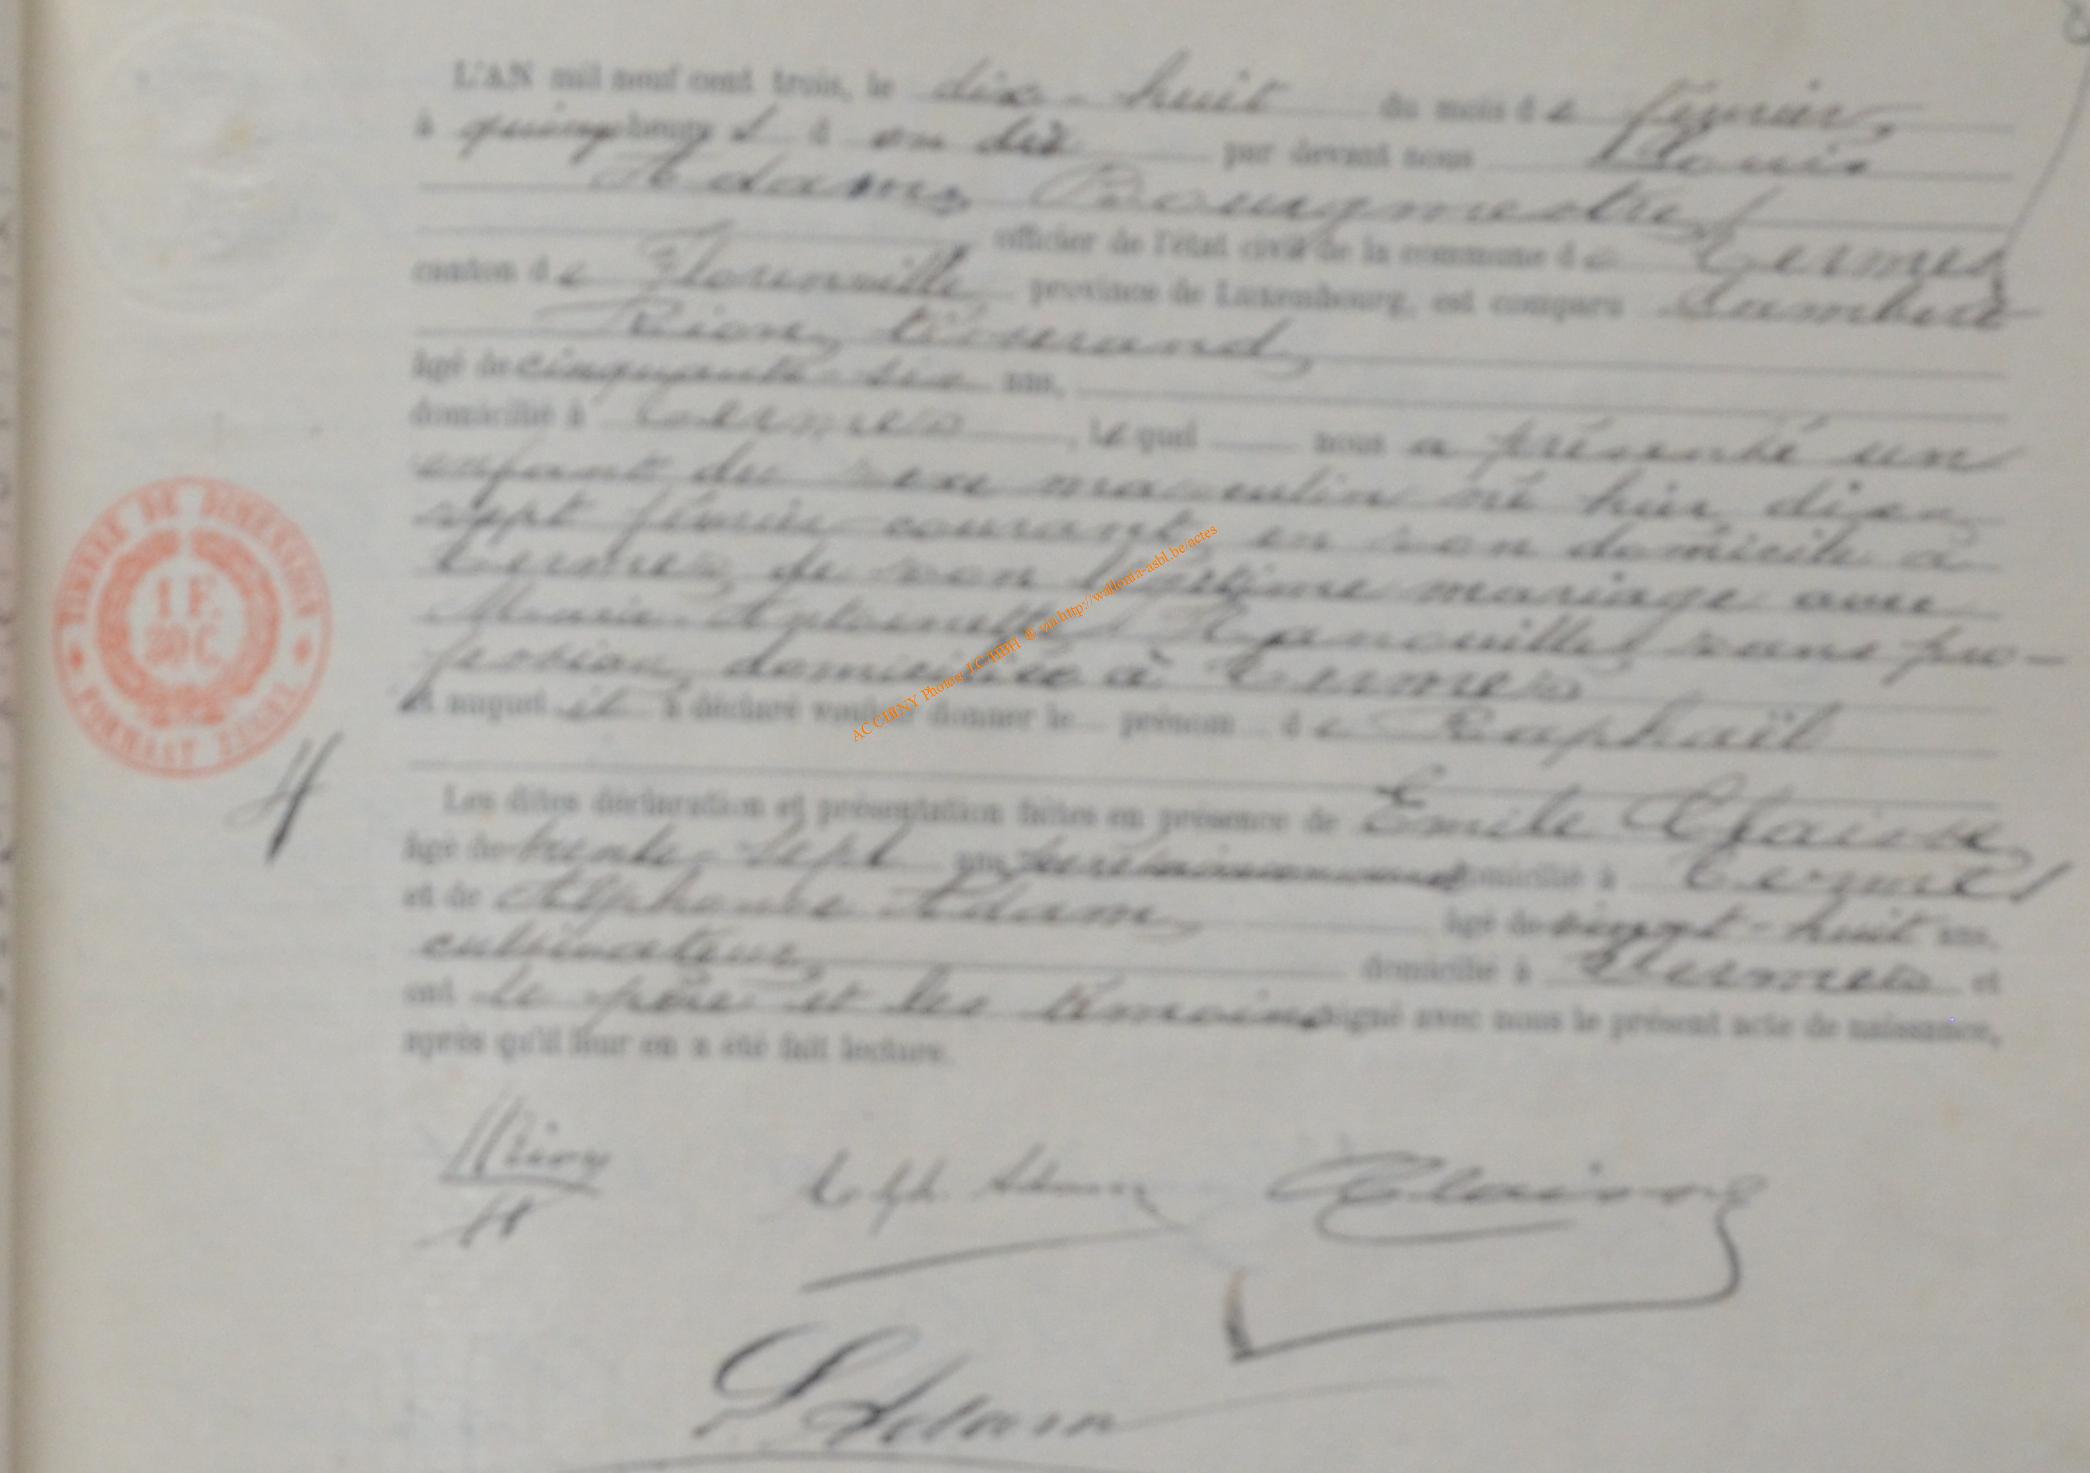 L'AN mil neuf cent trois, le dix-huit du mois de février,
à quinze heures à on dit par devant nous Louis
Adam, Bourgmestre,
officier de l'état civil de la commune de Termes
canton de Florenville province de Luxembourg, est comparu Lambert
Rion, Tisserand,
âgé de cinquante-six ans,
domicilié à Termes, lequel nous a présenté un
enfant du sexe masculin né hier, dix
sept février courant, en son domicile à
Termes, de son légitime mariage avec
Marie Antoinette sans pro-
fession, domiciliée à Termes
et auquel il a déclaré vouloir donner le prénom de Raphaël
Les dites déclaration et présentation faites en présence de Emile Claisse,
âgé de trente-sept ans, domicilié à Termes,
et de Alphonse Adam, âgé de vingt-huit ans,
cultivateur, domicilié à Termes et
ont le père et les témoins signé avec nous le présent acte de naissance,
après qu'il leur en a été fait lecture.
TIMBRE DE DIMENSION
1 F.
30 C.
Rion
Alph. Adam
Claisse
L. Adam
AC CHINY Photog via http://wallonia-asbl.be/actes